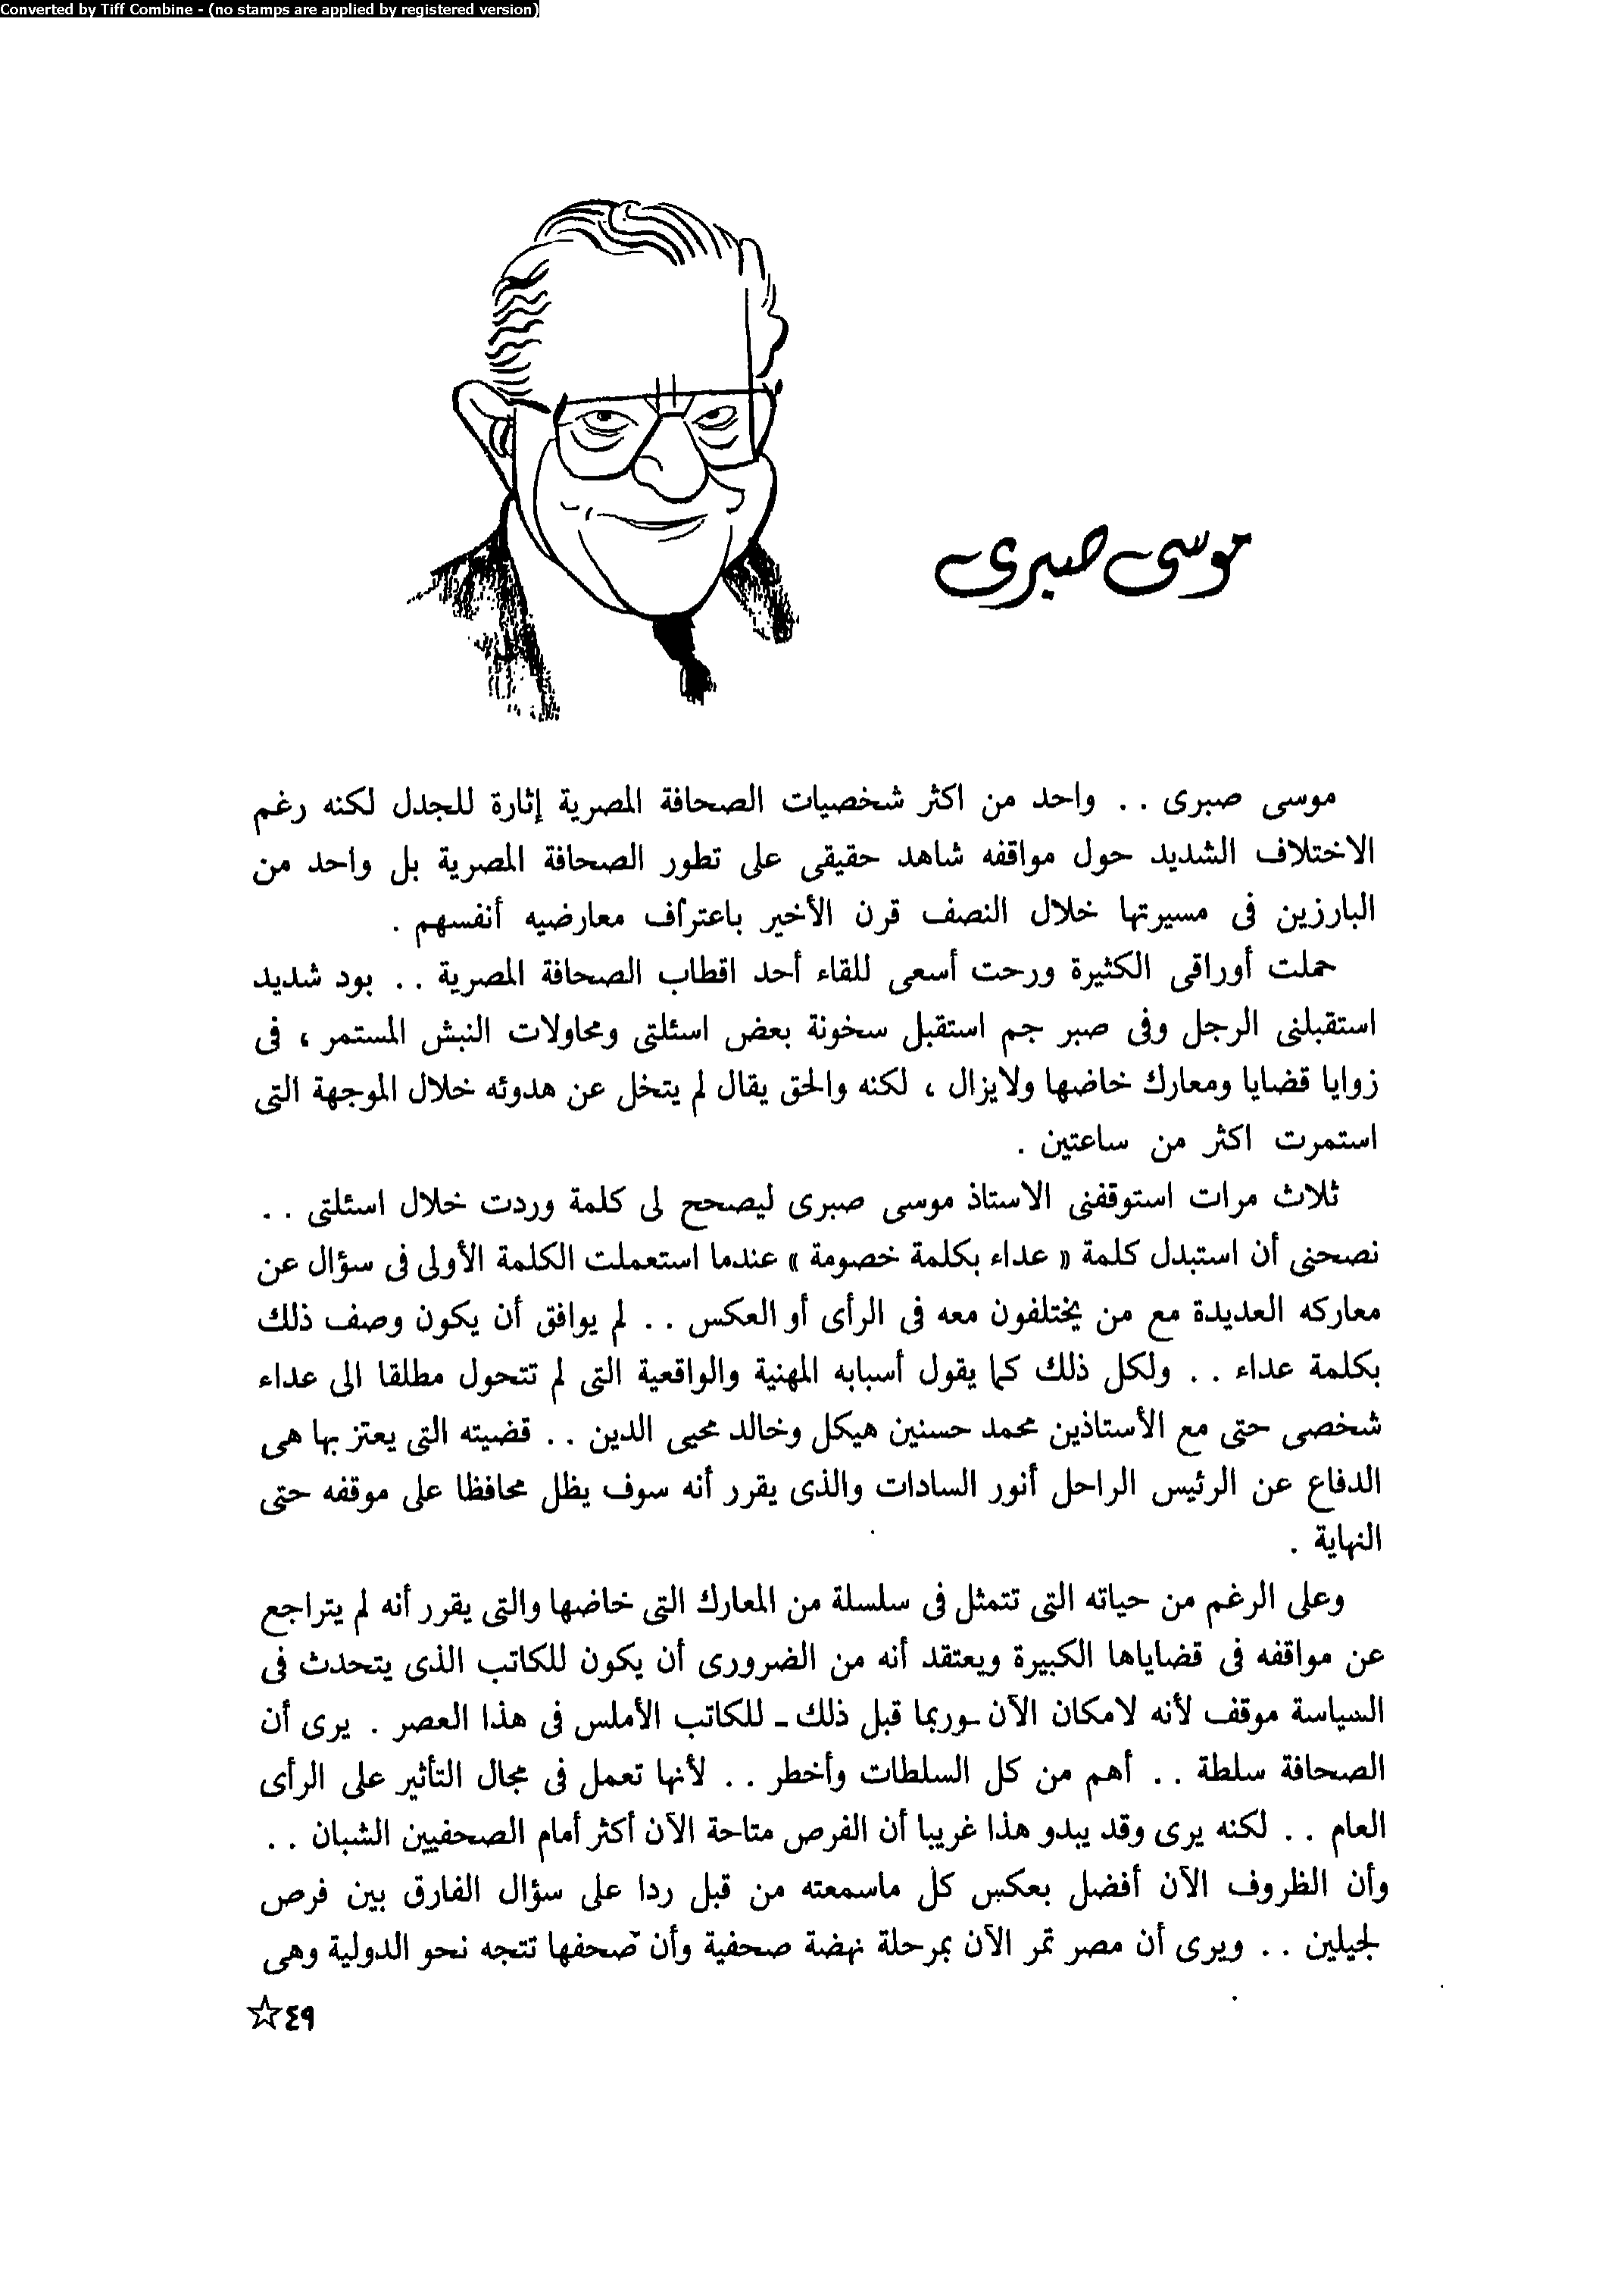 Converted by Tiff Combine - (no stamps are applied by registered version)
موسى صبرى
موسى صبرى . . واحد من اكثر شخصيات الصحافة المصرية إثارة للجدل لكنه رغم
الاختلاف الشديد حول مواقفه شاهد حقيقى على تطور الصحافة المصرية بل واحد من
البارزين فى مسيرتها خلال النصف قرن الأخير باعتراف معارضيه أنفسهم .
حملت أوراقى الكثيرة ورحت أسعى للقاء أحد اقطاب الصحافة المصرية . . بود شديد
استقبلنى الرجل وفى صبر جم استقبل سخونة بعض اسئلتى ومحاولات النبش المستمر ، فى
زوايا قضايا ومعارك خاضها ولايزال ، لكنه والحق يقال لم يتخل عن هدوئه خلال الموجهة التى
استمرت اكثر من ساعتين .
ثلاث مرات استوقفنى الاستاذ موسى صبرى ليصحح لى كلمة وردت خلال اسئلتى . .
نصحنى أن استبدل كلمة « عداء بكلمة خصومة » عندما استعملت الكلمة الأولى فى سؤال عن
معاركه العديدة مع من يختلفون معه فى الرأى أو العكس . . لم يوافق أن يكون وصف ذلك
بكلمة عداء . . ولكل ذلك كما يقول أسبابه المهنية والواقعية التى لم تتحول مطلقا الى عداء
شخصى حتى مع الأستاذين محمد حسنين هيكل وخالد محيى الدين . . قضيته التى يعتز بها هى
الدفاع عن الرئيس الراحل أنور السادات والذى يقرر أنه سوف يظل محافظا على موقفه حتى
النهاية .
وعلى الرغم من حياته التى تتمثل فى سلسلة من المعارك التى خاضها والتى يقرر أنه لم يتراجع
عن مواقفه فى قضاياها الكبيرة ويعتقد أنه من الضرورى أن يكون للكاتب الذى يتحدث فى
السياسة موقف لأنه لامكان الآن ـ وربما قبل ذلك ـ للكاتب الأملس فى هذا العصر . يرى أن
الصحافة سلطة . . أهم من كل السلطات وأخطر . . لأنها تعمل فى مجال التأثير على الرأى
العام . . لكنه يرى وقد يبدو هذا غريبا أن الفرص متاحة الآن أكثر أمام الصحفيين الشبان . .
وأن الظروف الآن أفضل بعكس كل ماسمعته من قبل ردا على سؤال الفارق بين فرص
لجيلين . . ويرى أن مصر تمر الآن بمرحلة نهضة صحفية وأن صحفها تتجه نحو الدولية وهى
٤٩☆